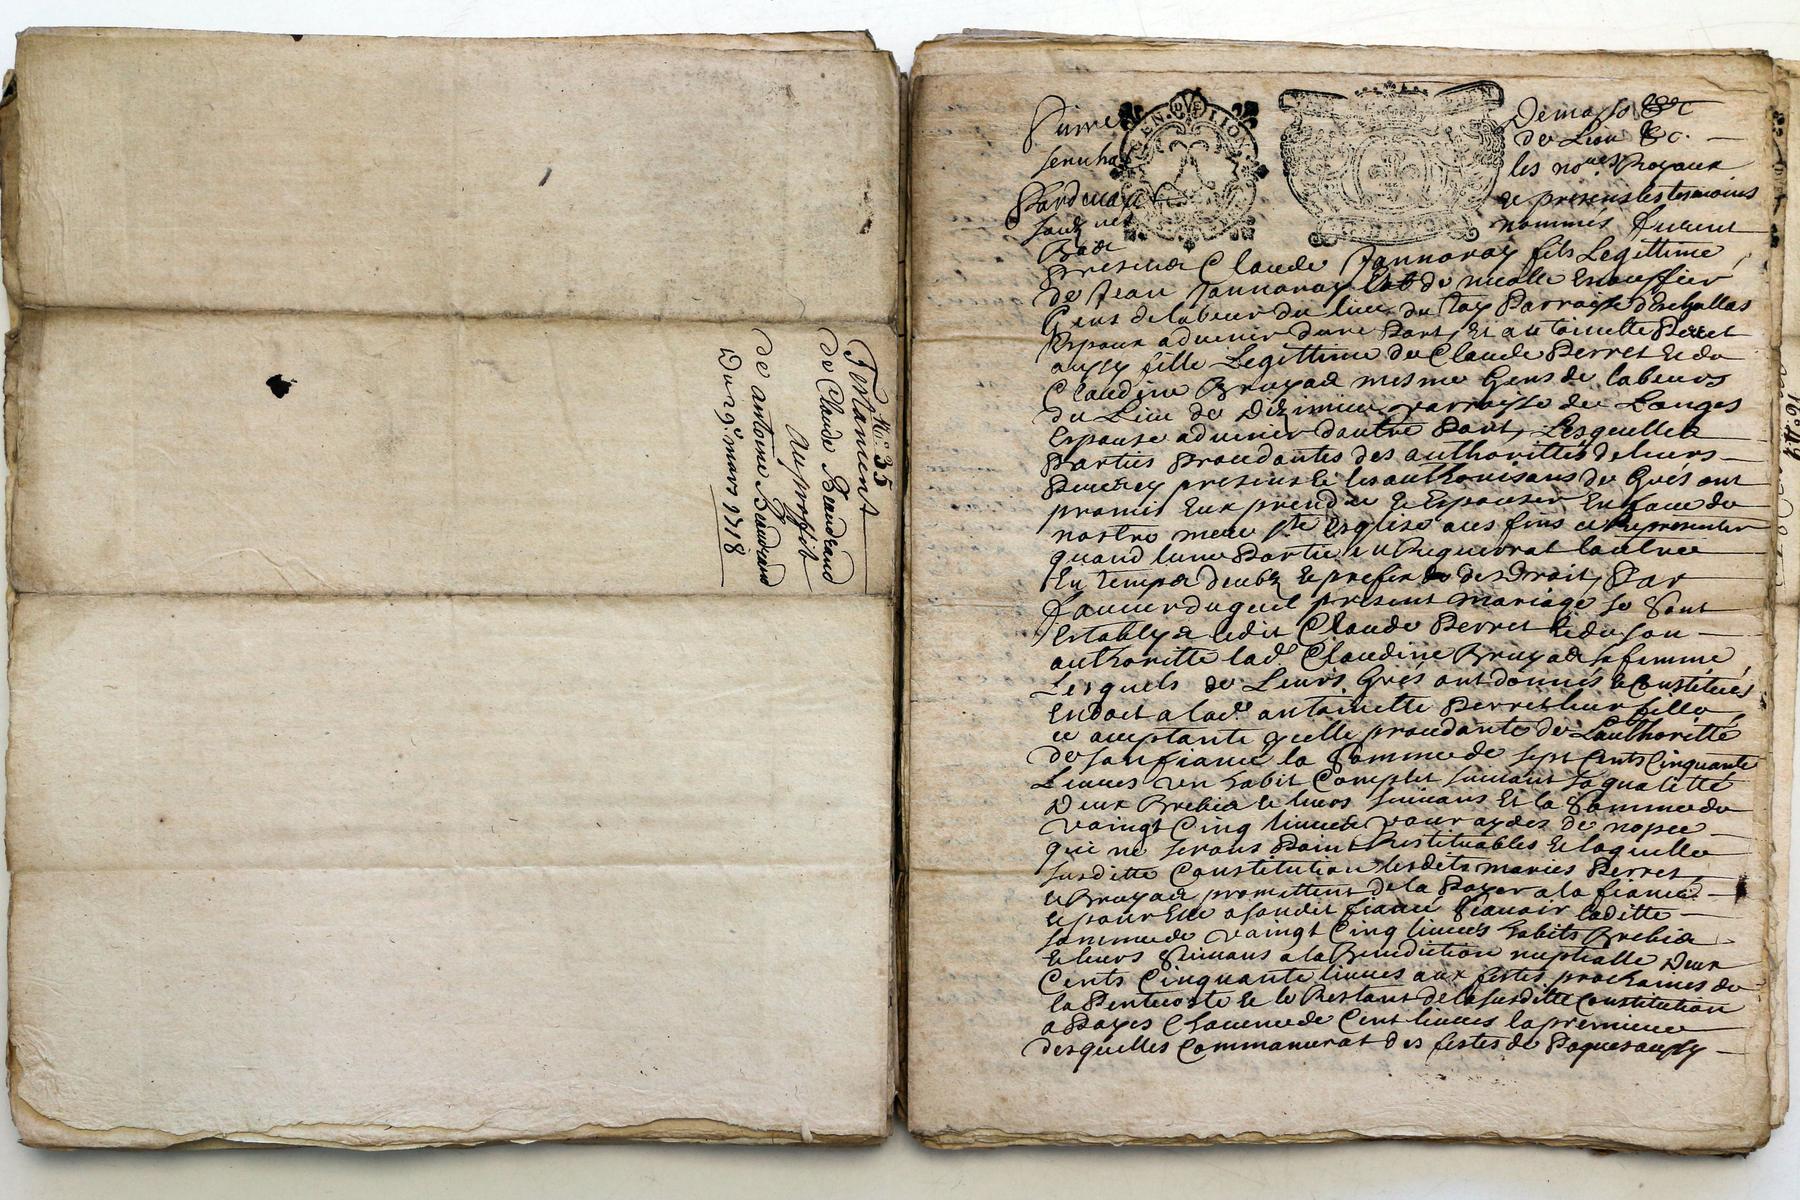 No: 35
Testament
de Claude Beaudrand
au proffit
de antoine Beaudrand
Du 9e mars 1718
GEN. DE LION
Pierre
Demasso &c
senechal
de Lion &c.
les no.res Royaux
Pardevant
et presens les tesmoins
soubz nes
nommés furent
Bas
presens Claude Jannoray fils Legittime
de Jean Jannoray et de
Gens de labeur du lieu du Parroisse deschallas
Espoux advenir dune Part, Et antoinette Perret
aussy fille Legittime de Claude Perret et de
Claudine Bruyas mesme Gens de labeurs
du Lieu de parroisse de Longes
Espouse advenir dautre Part, Lesquelles
Parties Procedantes des authorittés de leurs
presens et les authorisans de Grés ont
promis Eux prendre et Espouser En face de
nostre mere ste Esglise aux fins ce Representer
quand lune Partie en Requerrat lautree
En temps deubz et prefix de Droit, Par
faveur duquel present mariage se sont
establys ledit Claude Perret et de son
authoritte lade Claudine Bruyas sa femme
Lesquels de Leurs Grés ont donnés et Constitués
En dot a lade antoinette Perret leur fille
ce acceptante icelle procedante de Lauthoritté
de son fiancé la Somme de sept Cents Cinquante
Livres un habit Complet suivant sa qualitté
Deux Brebis et leurs suivans Et la Somme de
vaingt Cinq livres pour aydes de nopce
qui ne serons Point Restituables Et laquelle
susditte Constitution lesdits mariés Perret
et Bruyas promettent de la Payer a la fiancé
et pour Elle a sondit fiancé Scavoir laditte
somme de vaingt Cinq livres habits Brebis
et leurs Suivans a la Benediction nuptialle Deux
Cents Cinquante livres aux festes prochaines de
la Pentecoste et le Restant de la susditte Constitution
a Payes Chacune de Cent livres la premiere
desquelles Commancerat des festes de Paques